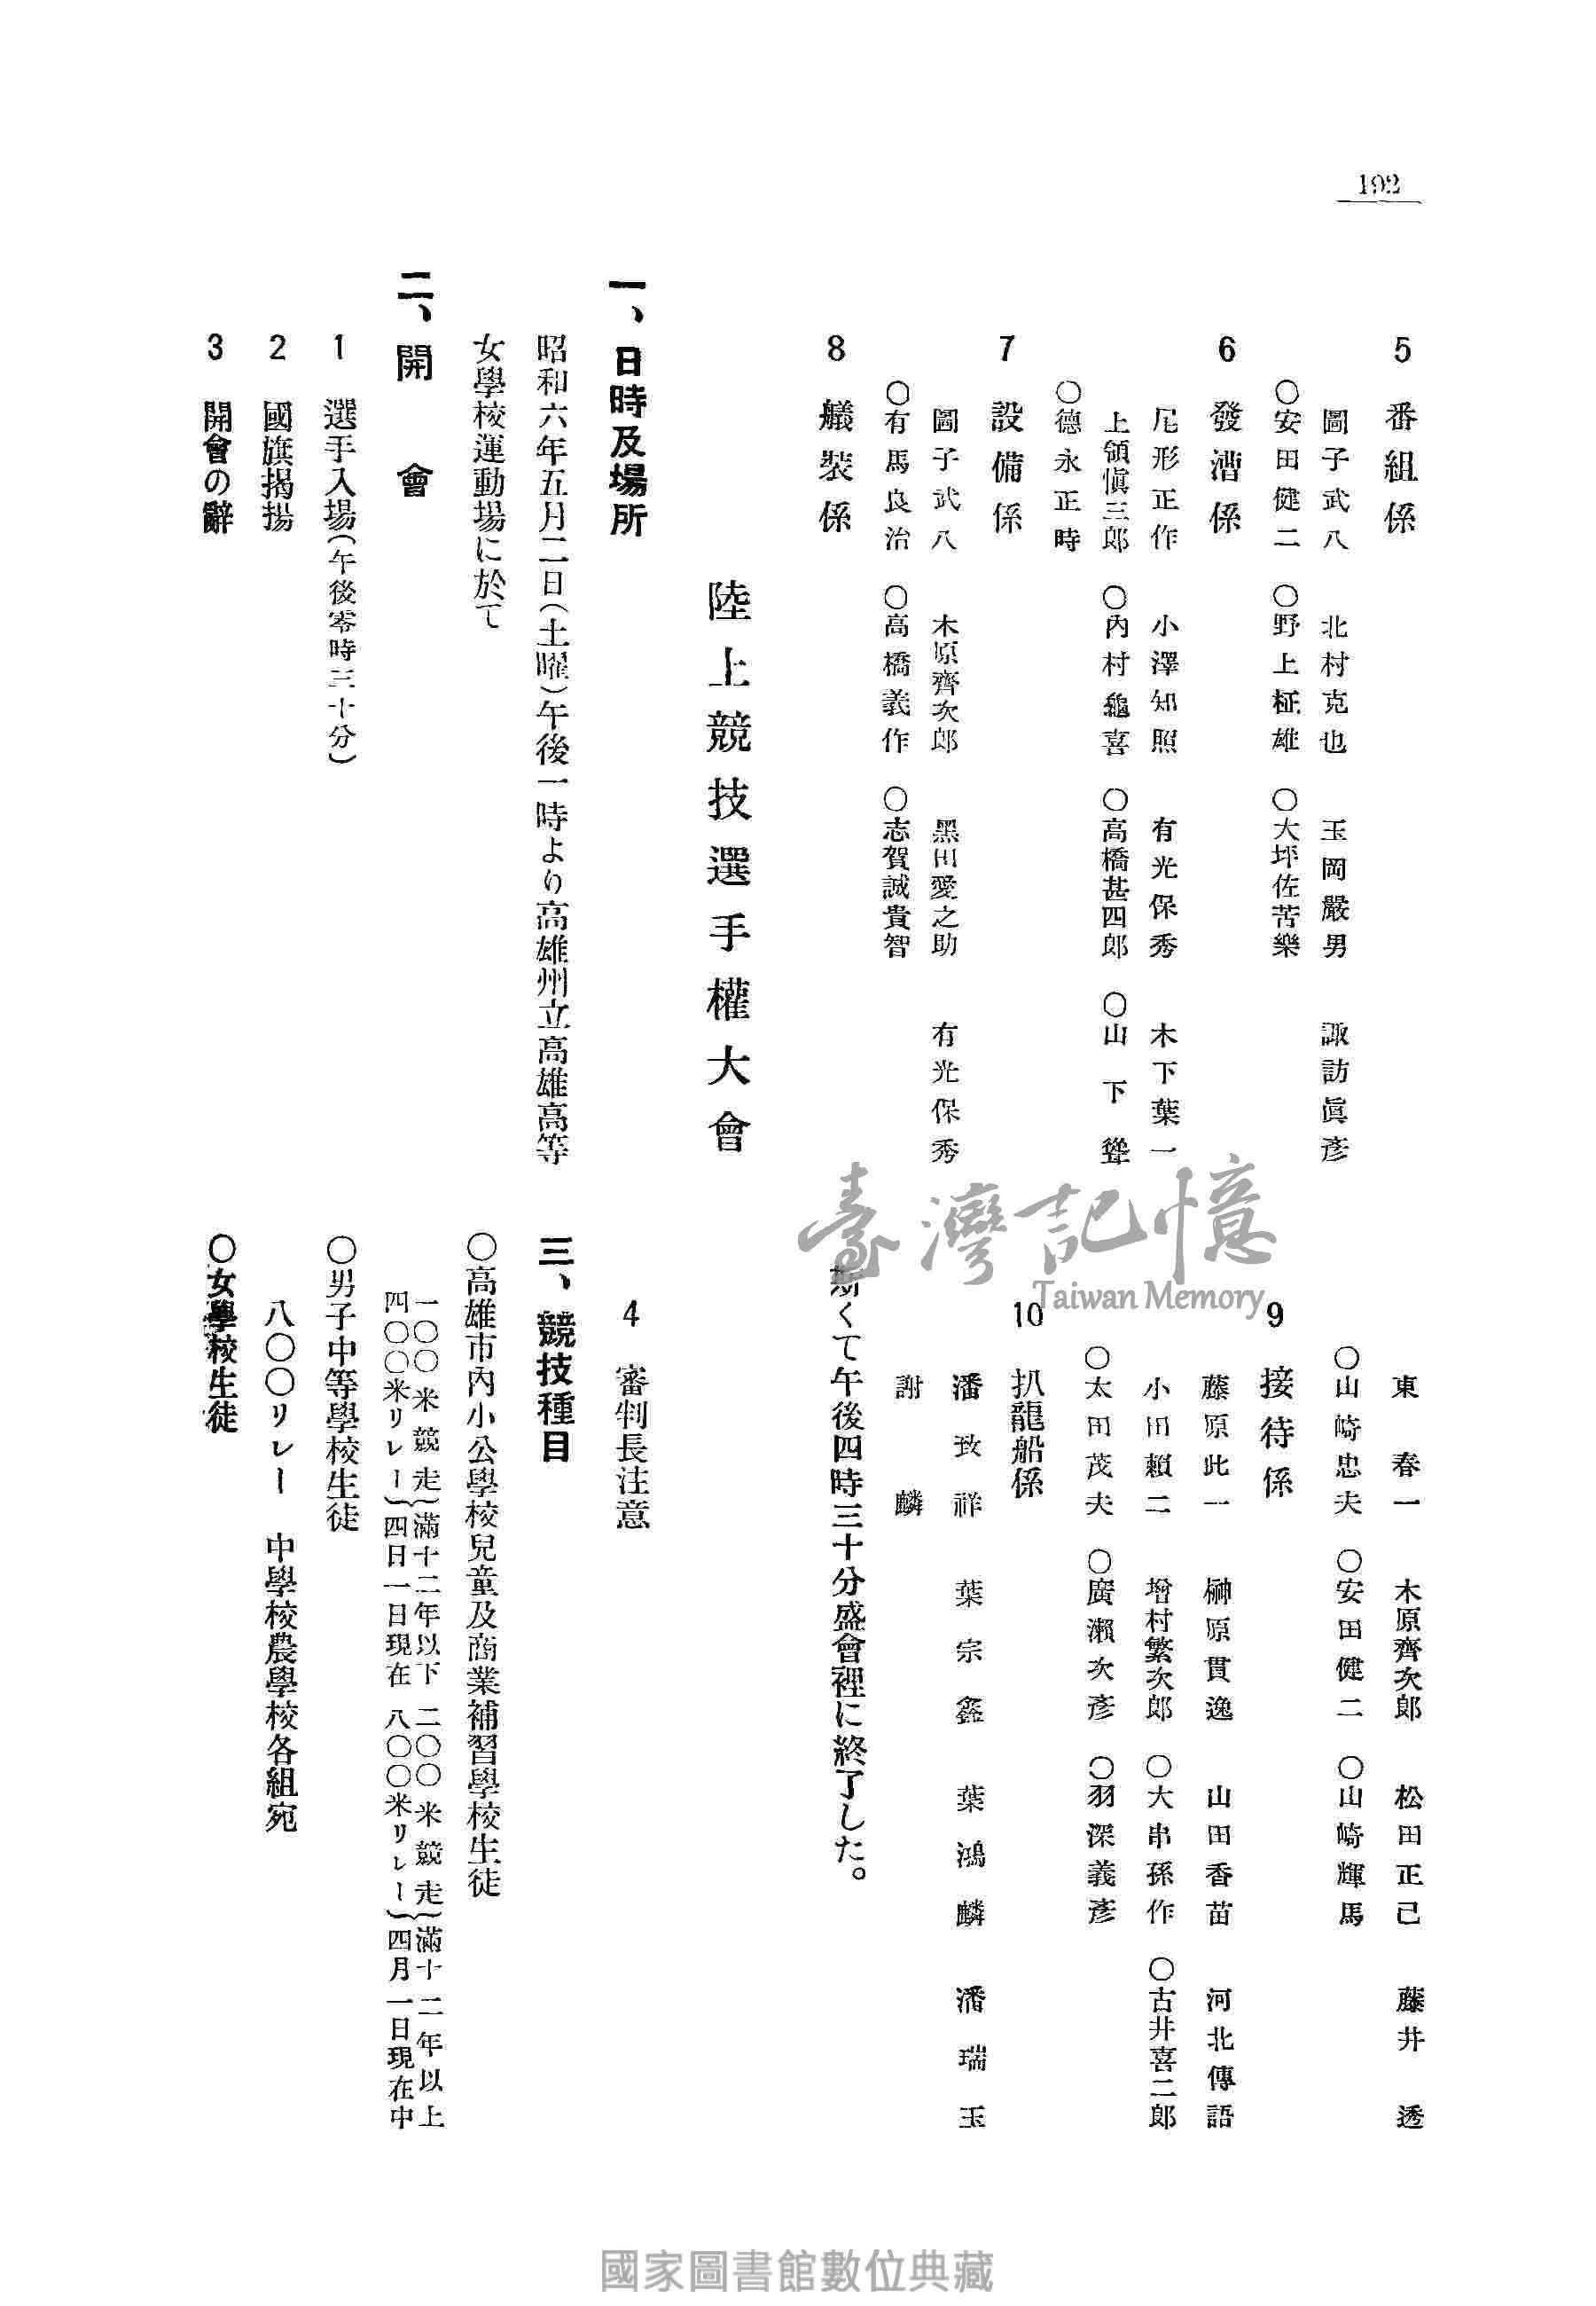 192
5 番組係
圖子武八 北村克也 玉岡嚴男 諏訪眞彥
○安田健二 ○野上柾雄 ○大坪佐苦樂
6 發漕係
尾形正作 小澤知照 有光保秀 木下葉一
上領愼三郎 ○內村龜喜 ○高橋甚四郎 ○山下聳
○德永正時
7 設備係
圖子武八 木原齊次郎 黑田愛之助 有光保秀
○有馬良治 ○高橋義作 ○志賀誠貴智
8 艤裝係
東春一 木原齊次郎 松田正己 藤井透
○山崎忠夫 ○安田健二 ○山崎輝馬
9 接待係
藤原此一 榊原貫逸 山田香苗 河北傳語
小田賴二 增村繁次郎 ○大串孫作 ○古井喜二郎
○太田茂夫 ○廣瀨次彥 ○羽深義彥
10 扒龍船係
潘致祥 葉宗鑫 葉鴻麟 潘瑞玉
謝麟
斯くて午後四時三十分盛會裡に終了した。
陸上競技選手權大會
一、日時及場所
昭和六年五月二日(土曜)午後一時より高雄州立高雄高等
女學校運動場に於て
二、開會
1 選手入場(午後零時三十分)
2 國旗揭揚
3 開會の辭
4 審判長注意
三、競技種目
○高雄市內小公學校兒童及商業補習學校生徒
一〇〇米競走{滿十二年以下 二〇〇米競走{滿十二年以上
四〇〇米リレー}四日一日現在 八〇〇米リレー}四月一日現在中
○男子中等學校生徒
八〇〇リレー 中學校農學校各組宛
○女學校生徒
臺灣記憶
Taiwan Memory
國家圖書館數位典藏